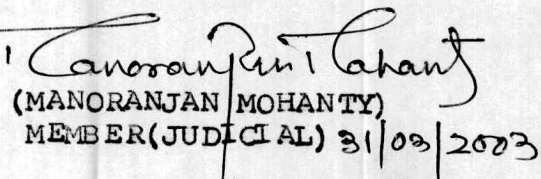 Manoranjan Mohanty
(MANORANJAN MOHANTY)
MEMBER(JUDICIAL) 31/03/2003